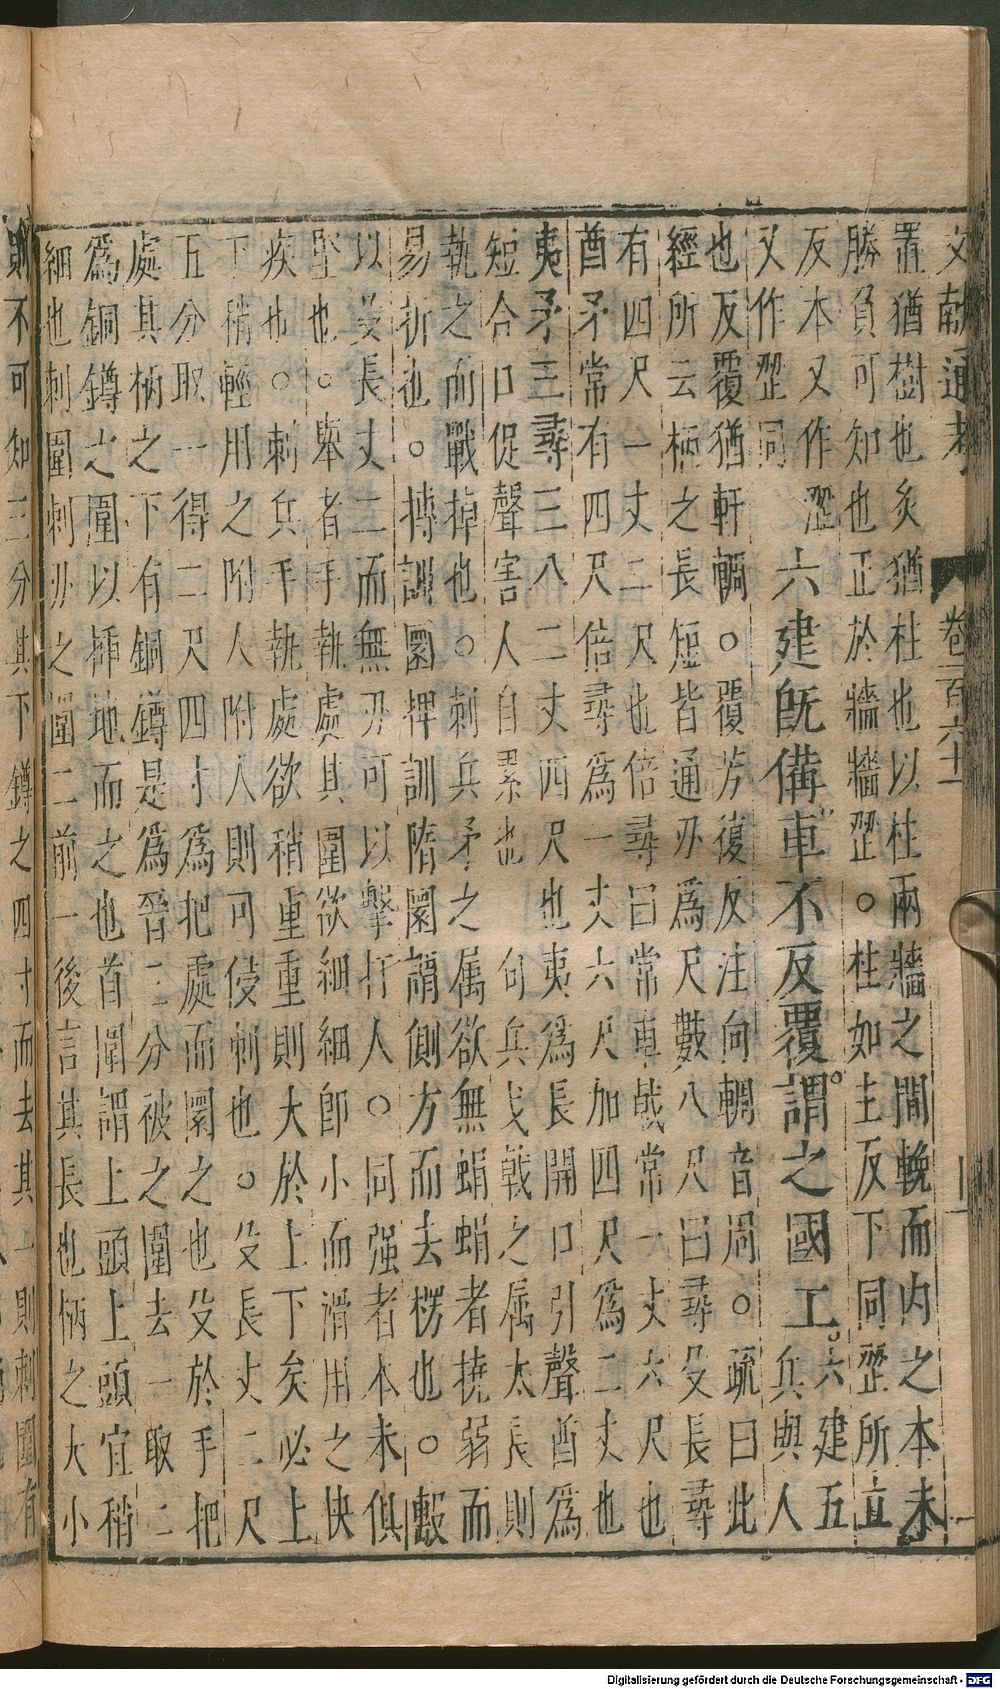 文獻通考 卷一百六十一 十一
置猶樹也炙猶柱也以柱兩牆之間輓而内之本末
勝負可知也正於牆牆歰。柱如主反下同歰所立
反本又作澀
又作歰同
六建既備車不反覆謂之國工。
六建五
兵與人
也反覆猶軒輖。覆芳復反注向輖音周。疏曰此
經所云柄之長短皆通刃爲尺數八尺曰尋殳長尋
有四尺一丈二尺也倍尋曰常車戟常一丈六尺也
酋矛常有四尺倍尋爲一丈六尺加四尺爲二丈也
夷矛三尋三八二丈四尺也夷爲長開口引聲酋爲
短合口促聲害人自累也 句兵戈戟之属太長則
執之而戰掉也。刺兵矛之属欲無蜎蜎者撓弱而
易折也。摶訓圜椑訓隋圜謂側方而去楞也。毄
以殳長丈二而無刃可以擊打人。同强者本末俱
堅也。舉者手執處其圍欲細細卽小而滑用之快
疾也。刺兵手執處欲稍重重則大於上下矣必上
下稍輕用之附人附人則可使刺也。殳長丈二尺
五分取一得二尺四寸爲把處而圜之也殳於手把
處其柄之下有銅鐏是爲晉二分被之圍去一取二
爲銅鐏之圍以揷地而之也首圍謂上頭上頭宜稍
細也刺圍刺刃之圍二前一後言其長也柄之大小
則不可知三分其下鐏之四寸而去其一則刺圍有
Digitalisierung gefördert durch die Deutsche Forschungsgemeinschaft - DFG